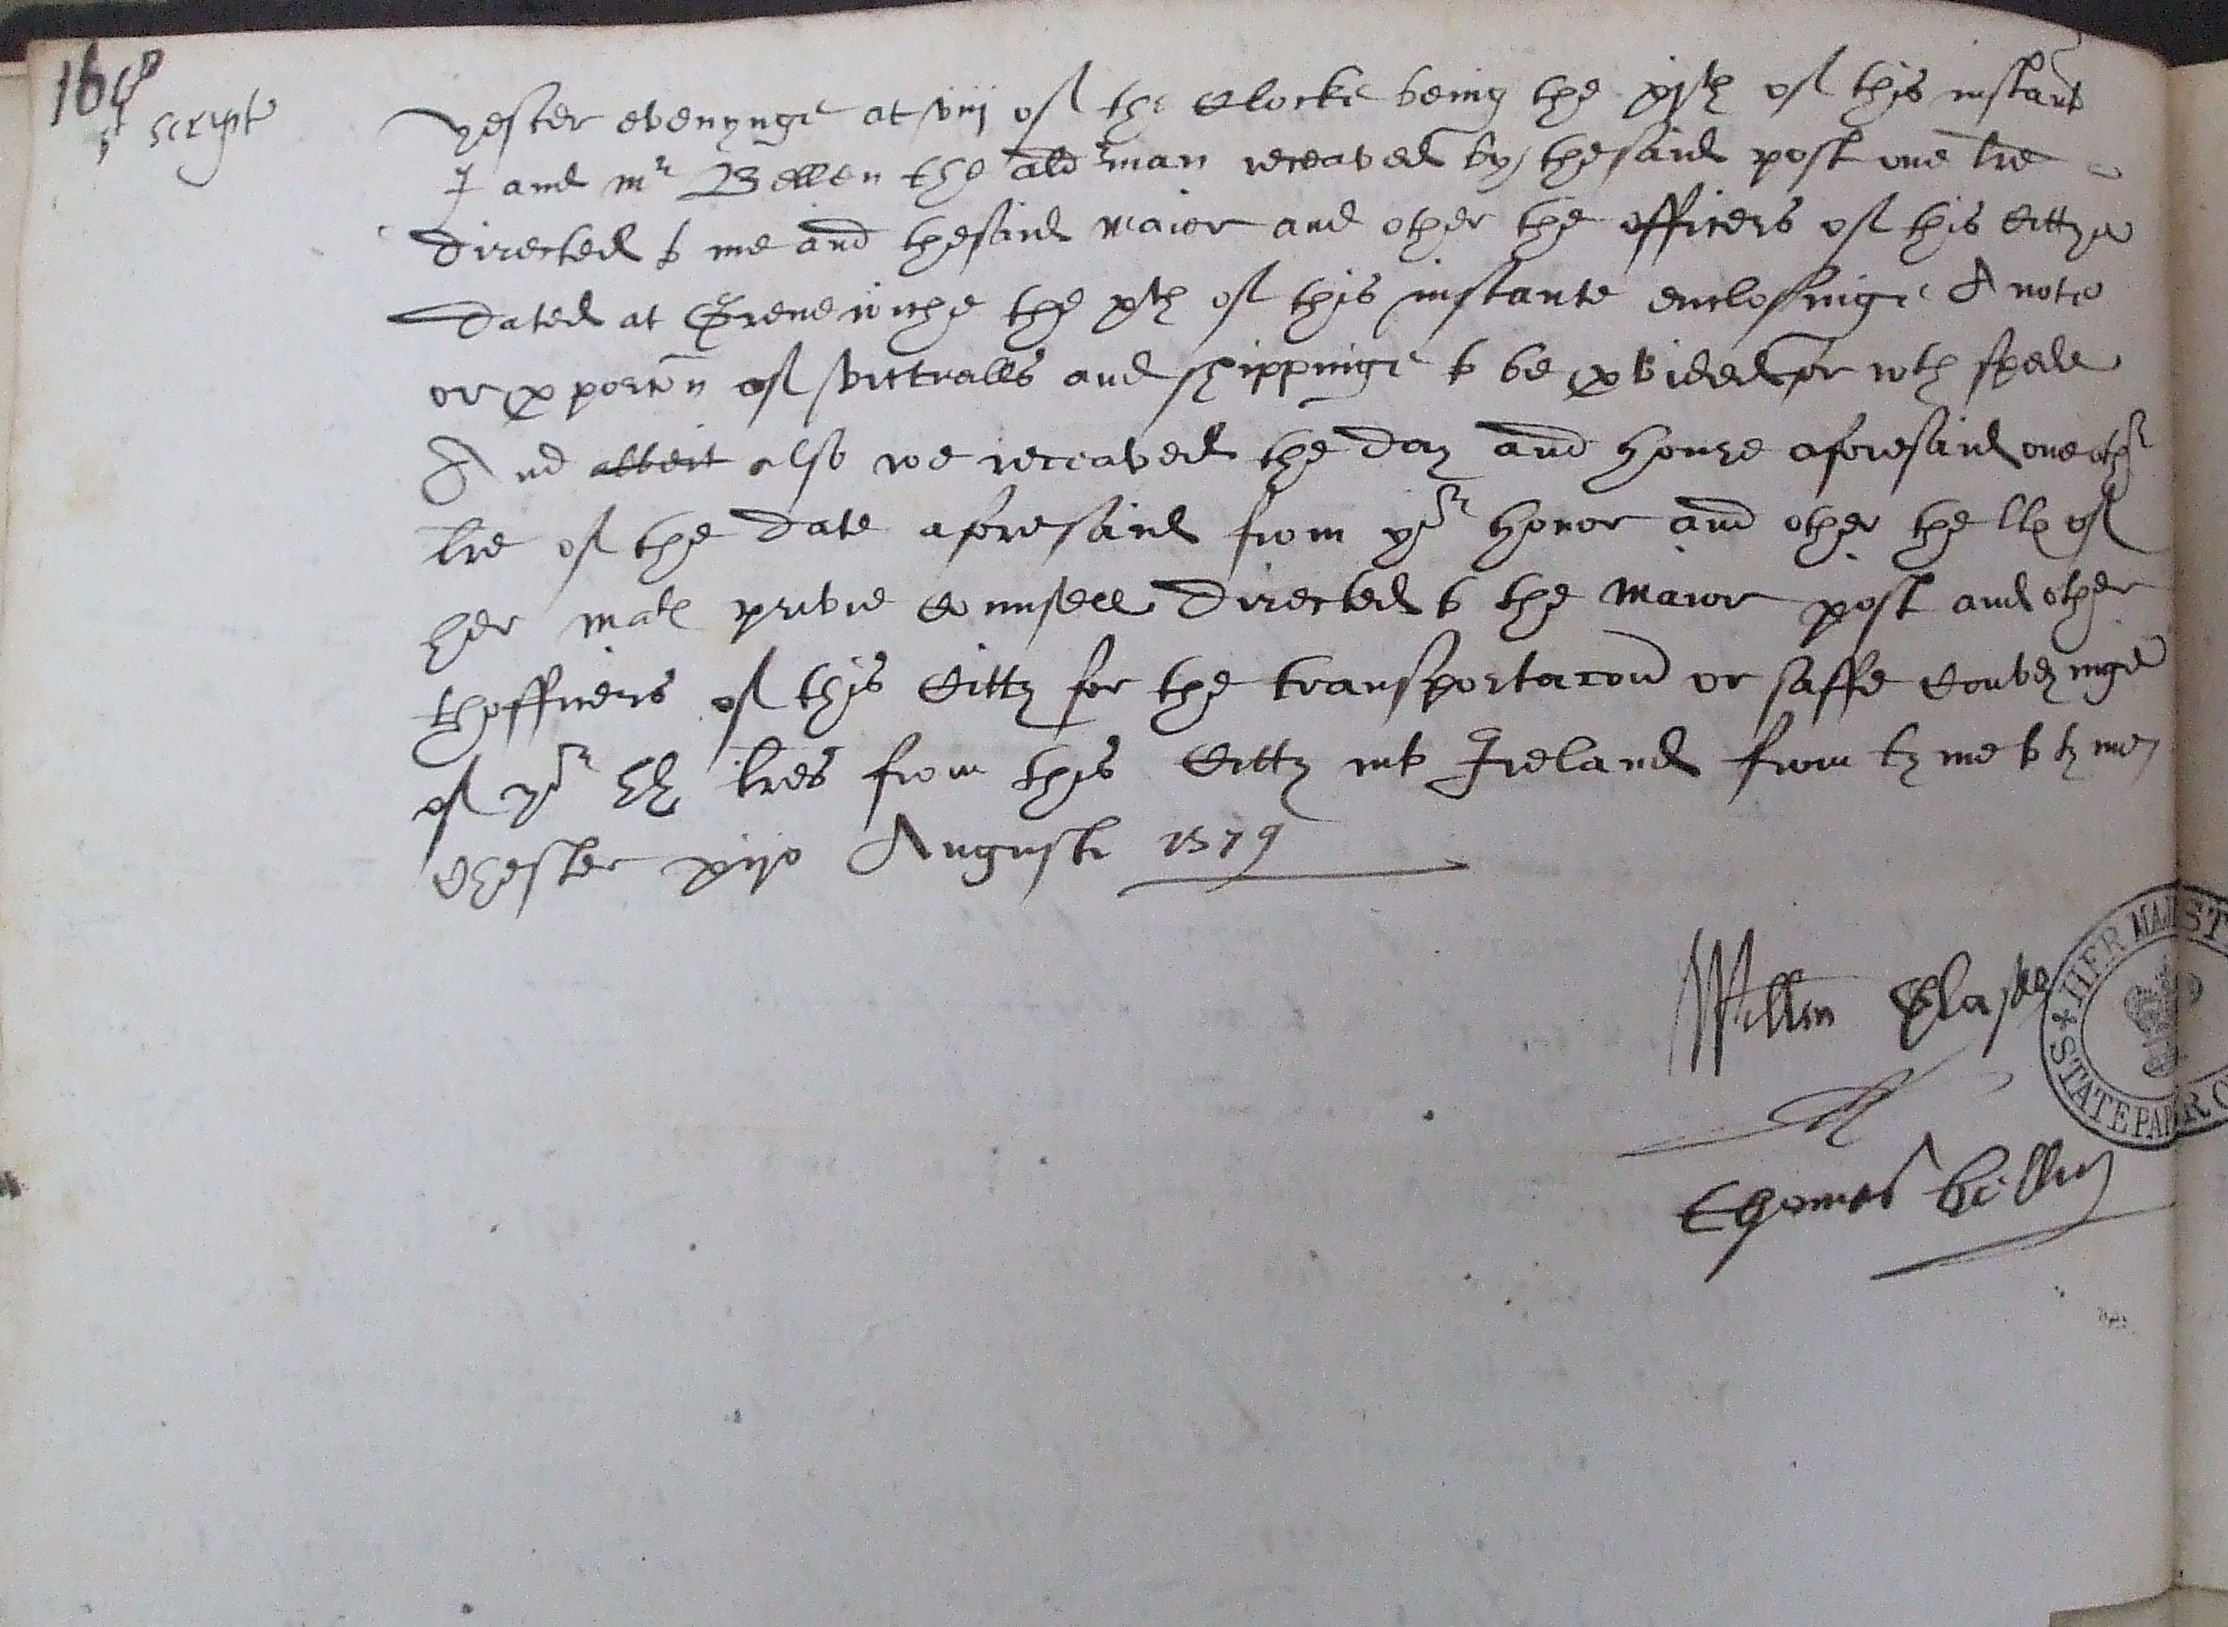 168
P
st script
yester evenynge at viij of the Clocke being the xjth of this instant
I and mr Bellen the ald rman receaved by thesaid post one lre
directed to me and thesaid Maior and other the officers of this Cittye
dated at Grenewiche the xth of this instante enclosinge A note
or pporcon of victualls and shippinge to be pvided for wth spede
And albeit also we receaved the day and houre aforesaid one othr
lre of the date aforesaid from yor honor and other the llp of
her matie privie Counsell directed to the Maior post and other
thofficers of this Citty for the transportacon or saffe conveyinge
of yor LL lres from this Citty into Ireland from tyme to tyme
Chester xijo Auguste 1579
Willm
Thomas Bellin
HER MAJEST
STATE PAPER O